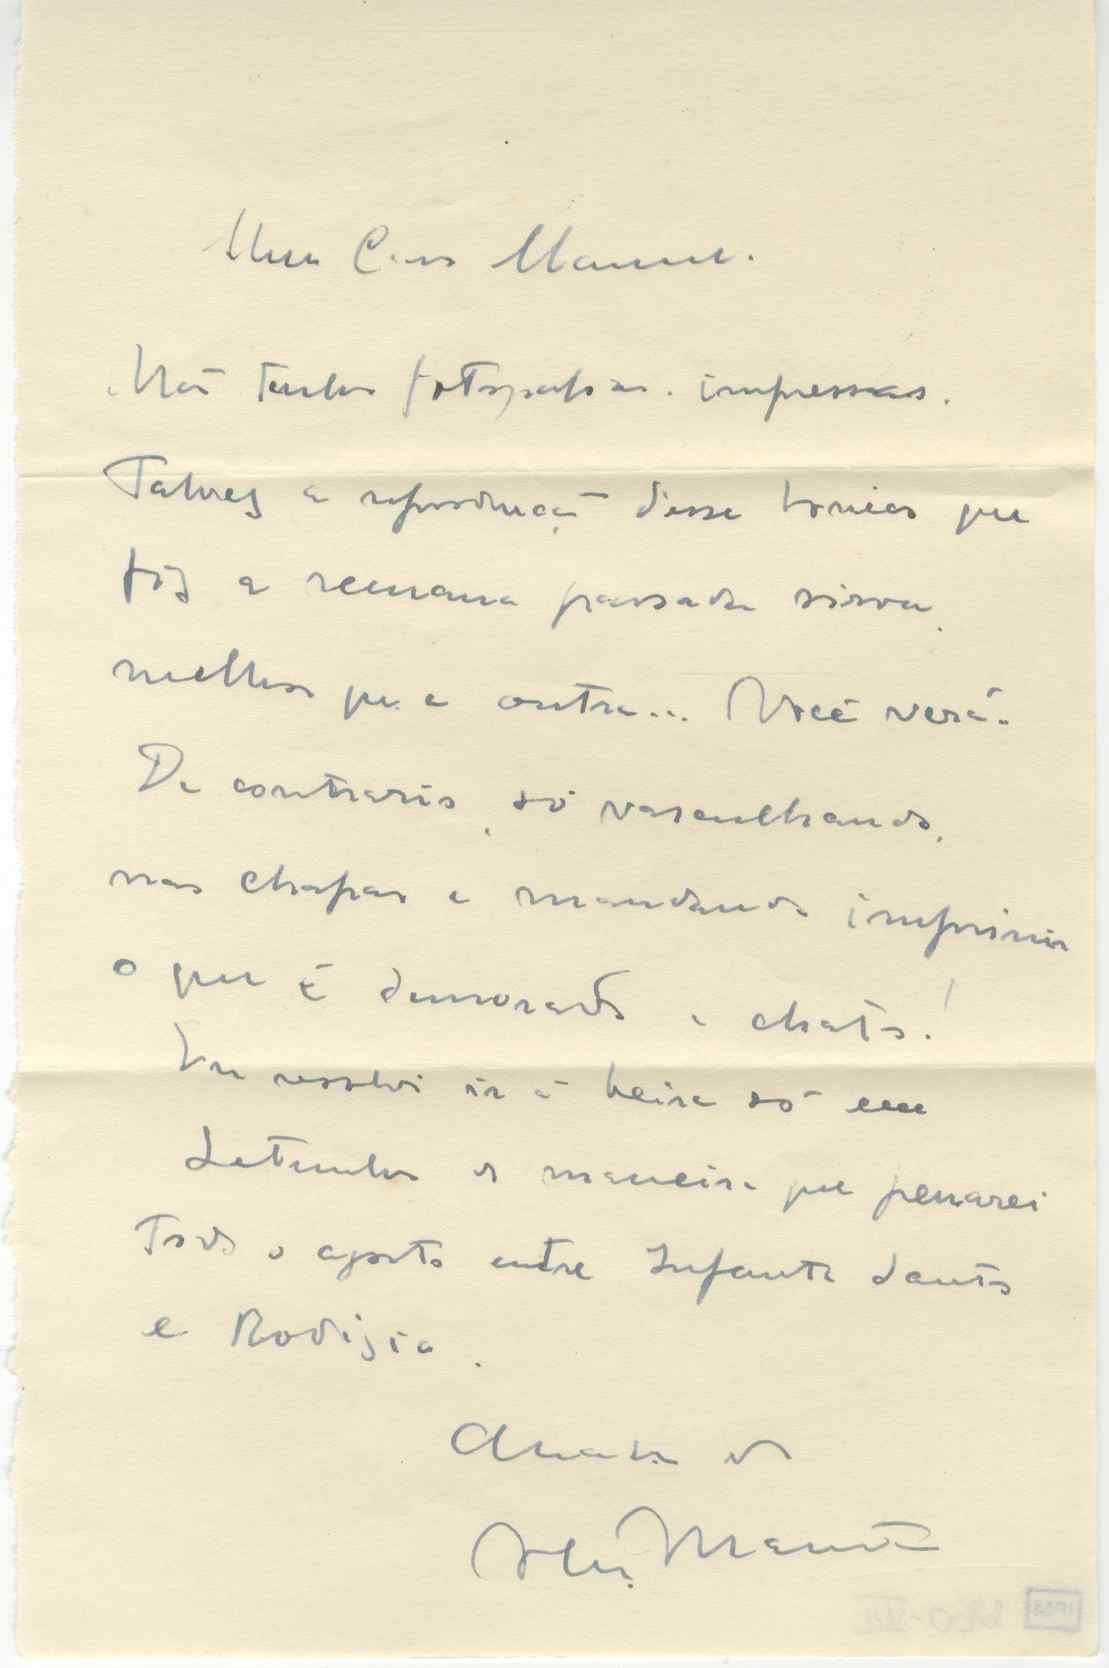 Meu Caro Manuel.
Não tenho fotografias impressas.
Talvez a reprodução desse boneco que
fiz a semana passada sirva
melhor que a outra... Você verá.
De contrario, só vasculhando,
nas chapas e mandando imprimir
o que é demorado e chato!
Eu resolvi ir á beira só em
Setembro de maneira que penarei
Todo o agosto entre Infante Santo
e Rodizio.
Abraço do